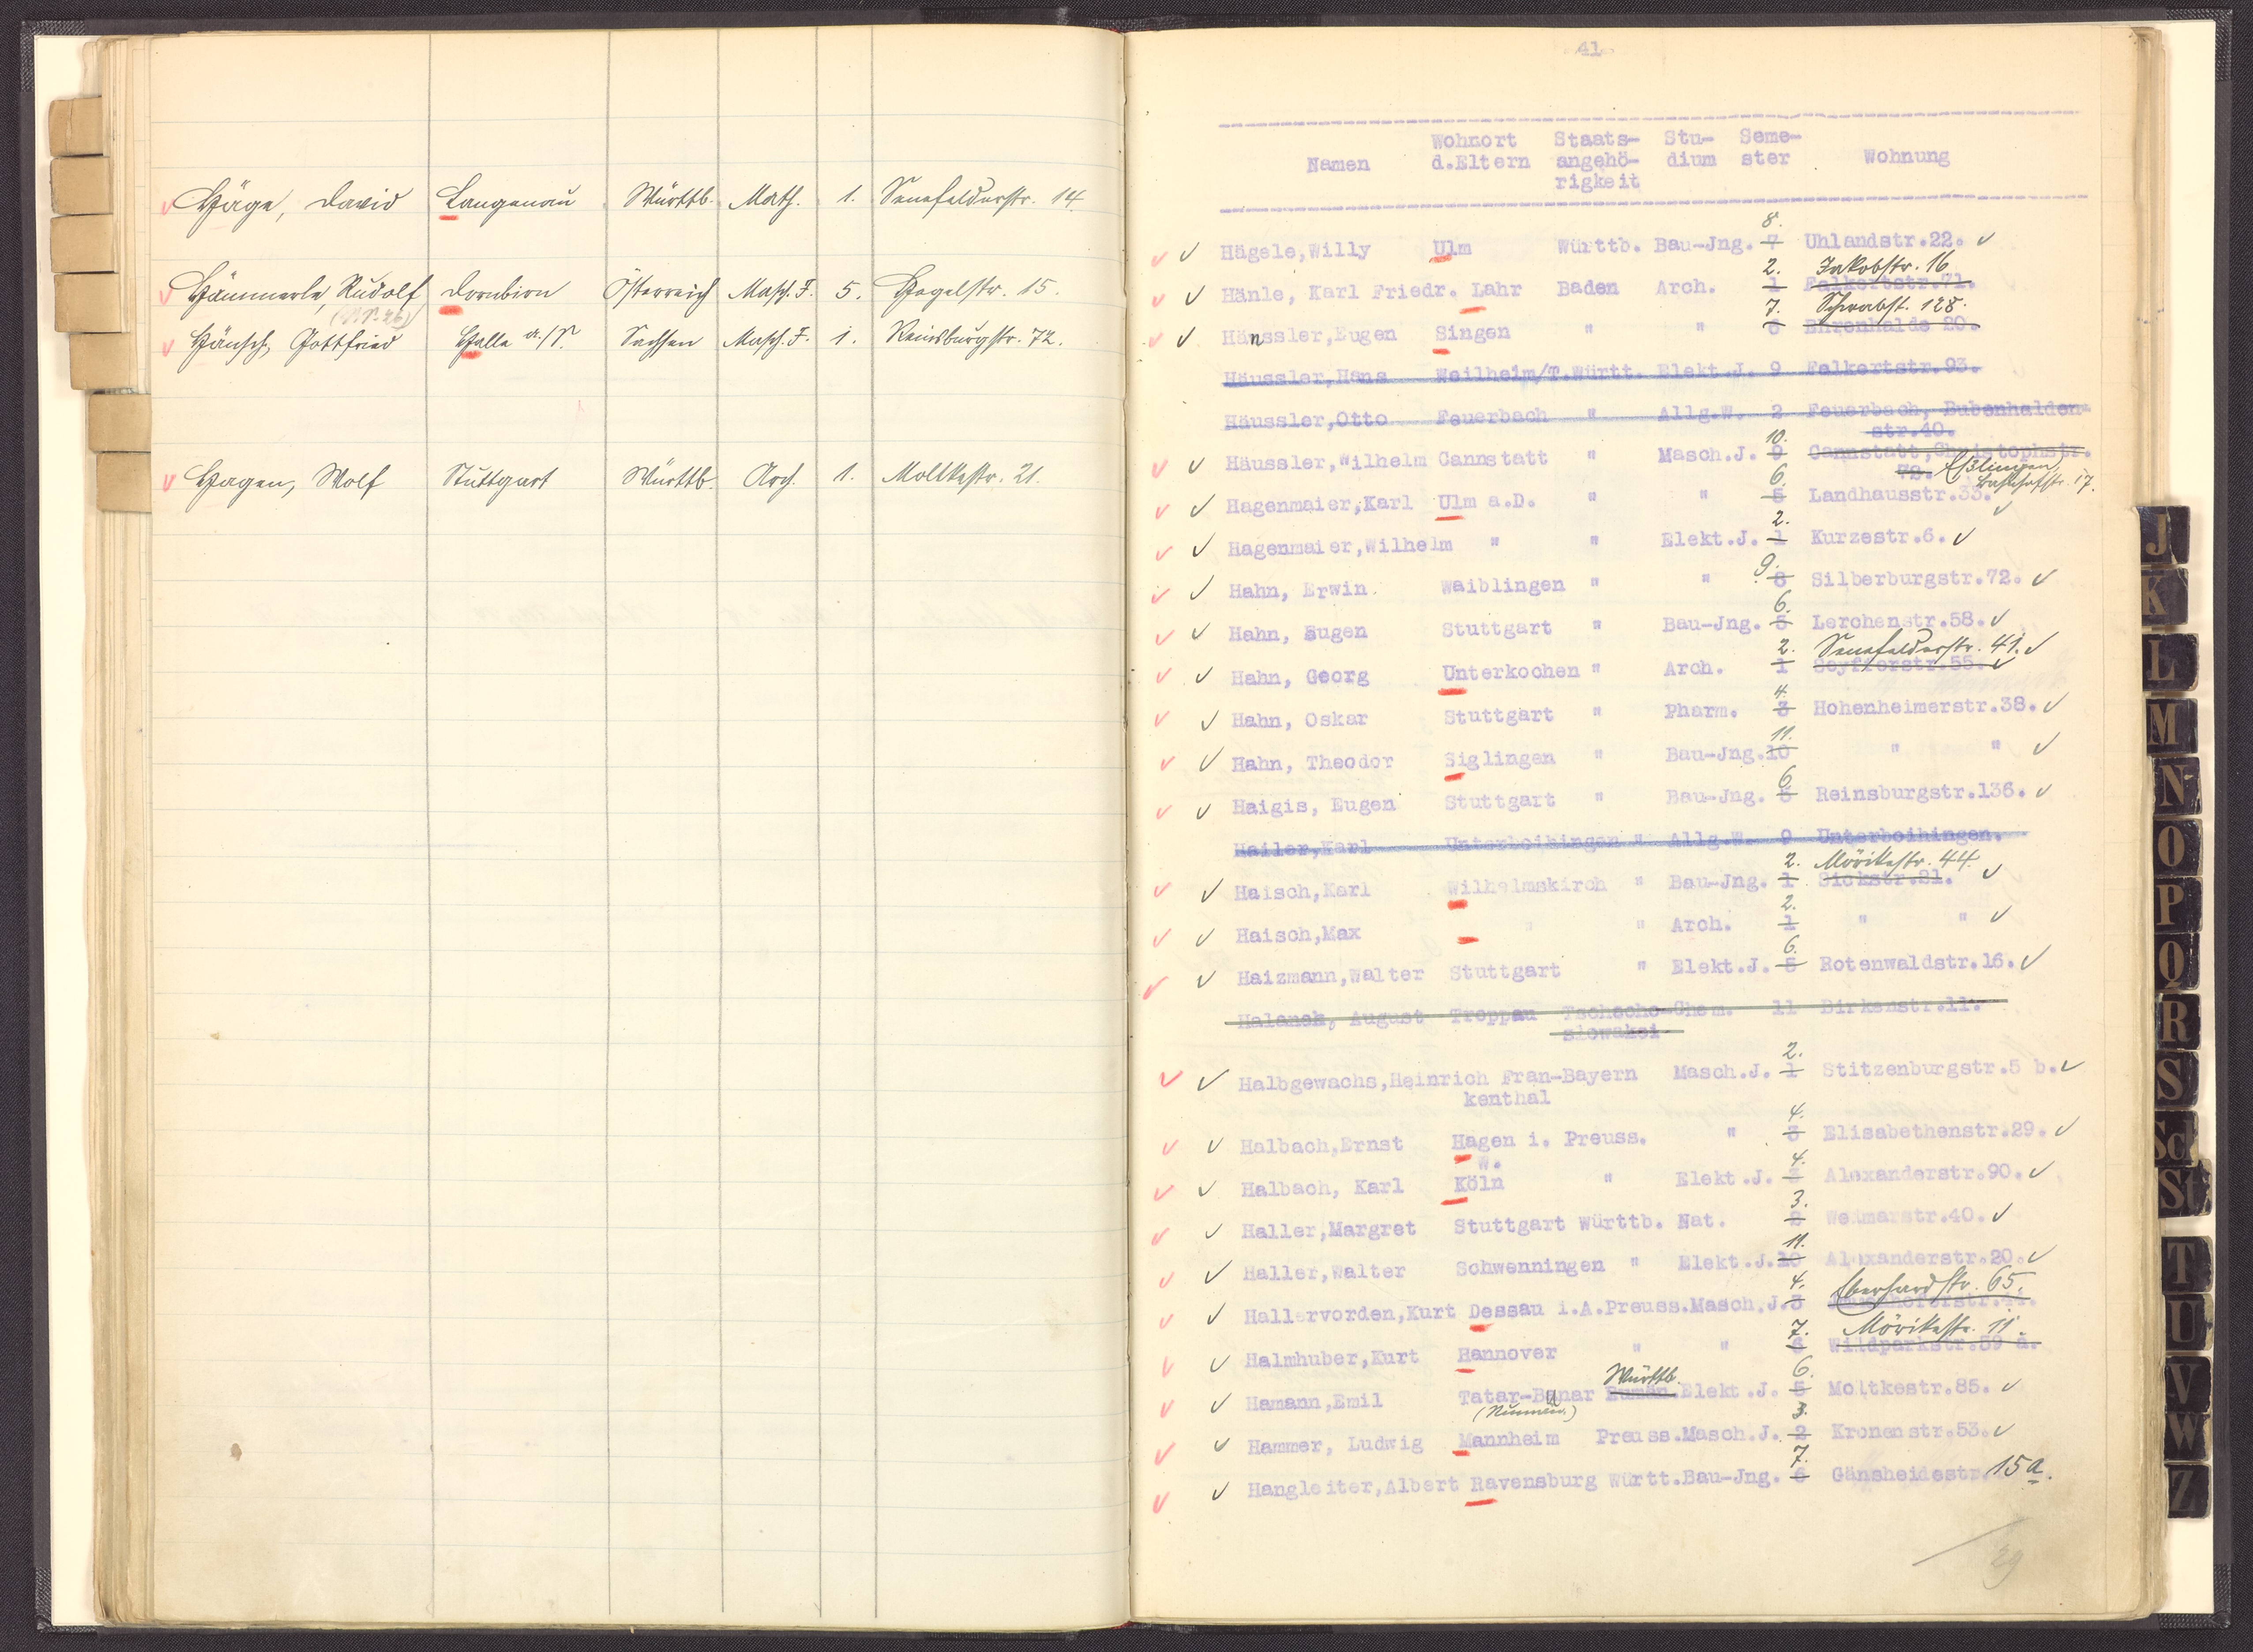 Häge, David Langenau Württb. Math. 1. Senefelderstr. 14.
Hämmerle, Rudolf Dornbirn Österreich Masch.J. 5. Hegelstr. 15.
Hänsch, Gottfried Halle a./S. Sachsen Masch.J. 1. Reinsburgstr. 72.
Hagen, Wolf Stuttgart Württb. Arch. 1. Moltkestr. 21.
41
Wohnort Staats- Stu- Seme-
Namen d.Eltern angehö- dium ster Wohnung
rigkeit
8.
Hägele,Willy Ulm Württb. Bau-Jng. 7 Uhlandstr.22.
2. Jakobstr. 16
Hänle, Karl Friedr. Lahr Baden Arch. 1 Falkertstr.71.
7. Schwabst. 128.
Hänssler,Eugen Singen " " 6 Ehrenhalde 20.
Häussler,Hans Weilheim/T.Württ. Elekt.J. 9 Falkertstr.93.
Häussler,Otto Feuerbach " Allg.W. 2 Feuerbach, Bubenhalden-
str.40.
10.
Häussler,Wilhelm Cannstatt " Masch.J. 9 Cannstatt,Christophstr.
72. Eßlingen,
Bahnhofstr. 17.
6.
Hagenmaier,Karl Ulm a.D. " " 5 Landhausstr.33.
2.
Hagenmaier,Wilhelm " " Elekt.J. 1 Kurzestr.6.
9.
Hahn, Erwin Waiblingen " " 8 Silberburgstr.72.
6.
Hahn, Eugen Stuttgart " Bau-Jng. 5 Lerchenstr.58.
2. Senefelderstr. 41.
Hahn, Georg Unterkochen " Arch. 1 Seyfferstr.55.
4.
Hahn, Oskar Stuttgart " Pharm. 3 Hohenheimerstr.38.
11.
Hahn, Theodor Siglingen " Bau-Jng.10 " "
6
Haigis, Eugen Stuttgart " Bau-Jng. 5 Reinsburgstr.136.
Hailer,Karl Unterboihingen " Allg.W. 9 Unterboihingen.
2. Mörikestr. 44.
Haisch,Karl Wilhelmskirch " Bau-Jng. 1 Sickstr.21.
2.
Haisch,Max " " Arch. 1 " "
6.
Haizmann,Walter Stuttgart " Elekt.J. 5 Rotenwaldstr.16.
Halanek, August Troppau Tschecho-Chem. 11 Birkenstr.11.
slowakei
2.
Halbgewachs,Heinrich Fran-Bayern Masch.J. 1 Stitzenburgstr.5 b.
kenthal
4.
Halbach,Ernst Hagen i. Preuss. " 3 Elisabethenstr.29.
W.
4.
Halbach, Karl Köln " Elekt.J. 3 Alexanderstr.90.
3.
Haller,Margret Stuttgart Württb. Nat. 2 Weimarstr.40.
11.
Haller,Walter Schwenningen " Elekt.J.10 Alexanderstr.20.
4. Eberhardstr. 65.
Hallervorden,Kurt Dessau i.A.Preuss.Masch.J.3
7. Mörikestr. 11.
Halmhuber,Kurt Hannover " " 6 Wildparkstr.39 a.
Württb. 6.
Hamann,Emil Tatar-Bunar Rumän.Elekt.J. 5 Moltkestr.85.
(Rumän.) 3.
Hammer, Ludwig Mannheim Preuss.Masch.J. 2 Kronenstr.53.
7.
Hangleiter,Albert Ravensburg Württ.Bau-Jng. 6 Gänsheidestr.15a.
29
J
K
L
M
N
O
P
Q
R
S
Sch
St
T
U
V
W
Z